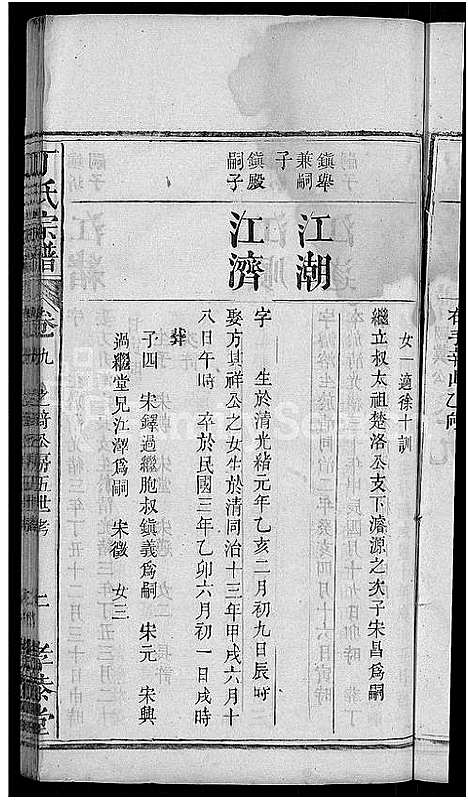 女一適徐十訓
繼立叔太祖楚洛公支下濬源之次子宋昌爲嗣
鎭舉
兼嗣
子
江潮
鎭殿
嗣子
江濟
字　生於清光緒元年乙亥二月初九日辰時
娶方其祥公之女生於清同治十三年甲戌六月十
八日午時　卒於民國三年乙卯六月初一日戌時
葬
子四　宋鐸過繼胞叔鎭義爲嗣　宋元　宋興
過繼堂兄江澤爲嗣　宋徵　女三
丁氏宗譜
卷九
公房五世考
二